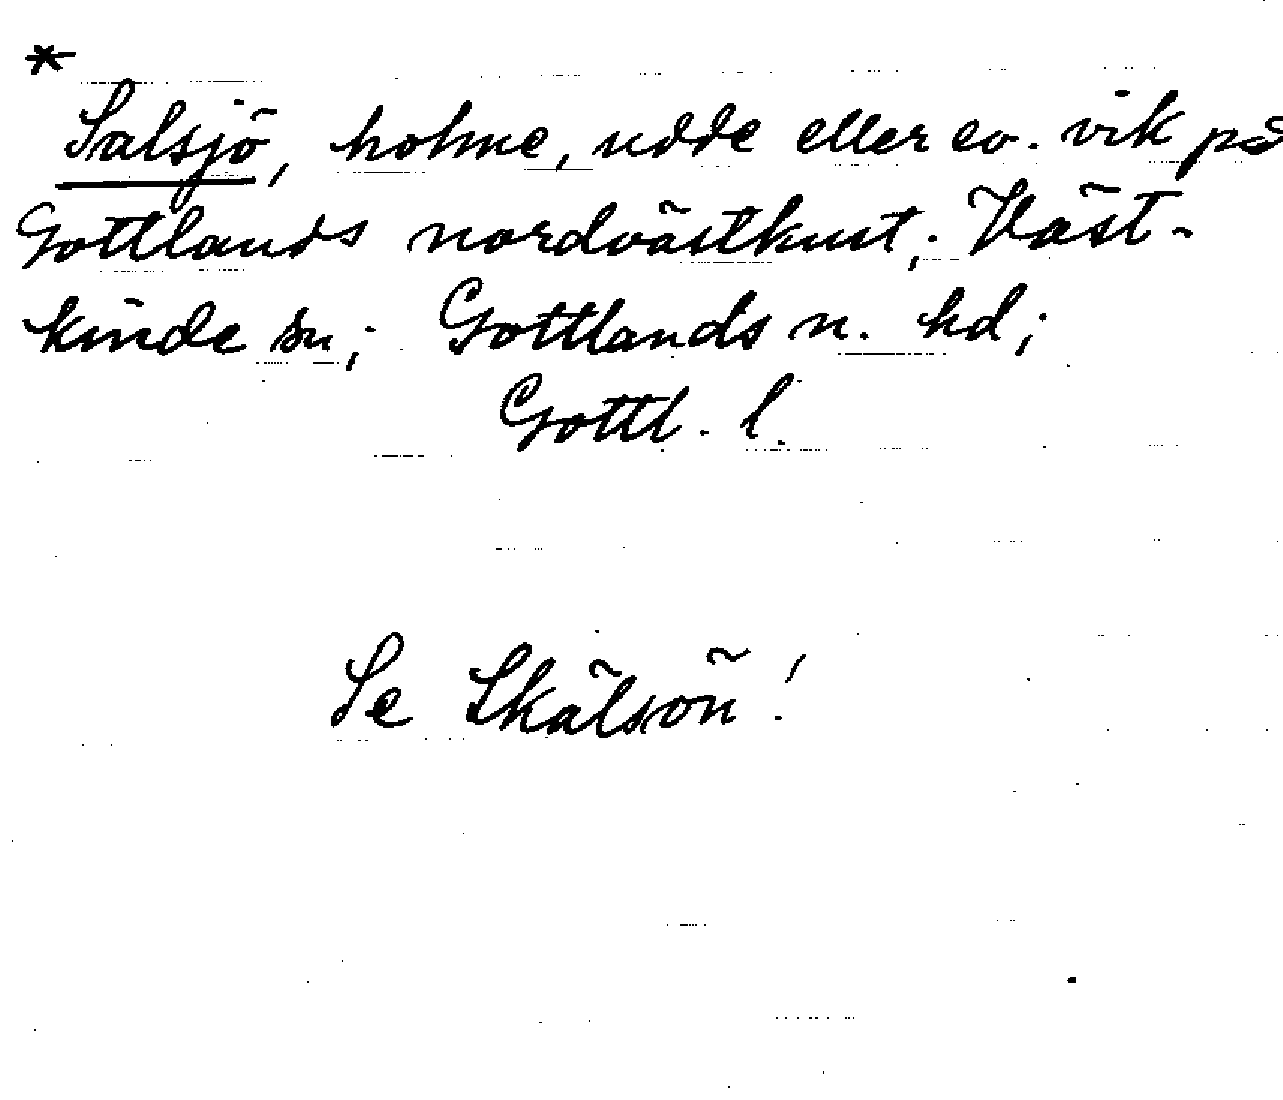 *
Salsjö, holme, udde eller ev. vik på
Gottlands nordvästkust; Väst-
kinde sn; Gottlands n. hd;
Gottl. l.
Se Skälsöñ!